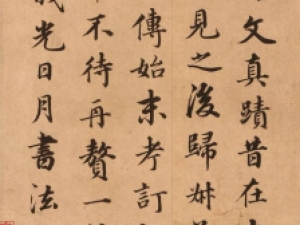 文真蹟昔在
見之後歸
傳始末考訂
不待再贅一
光日月書法